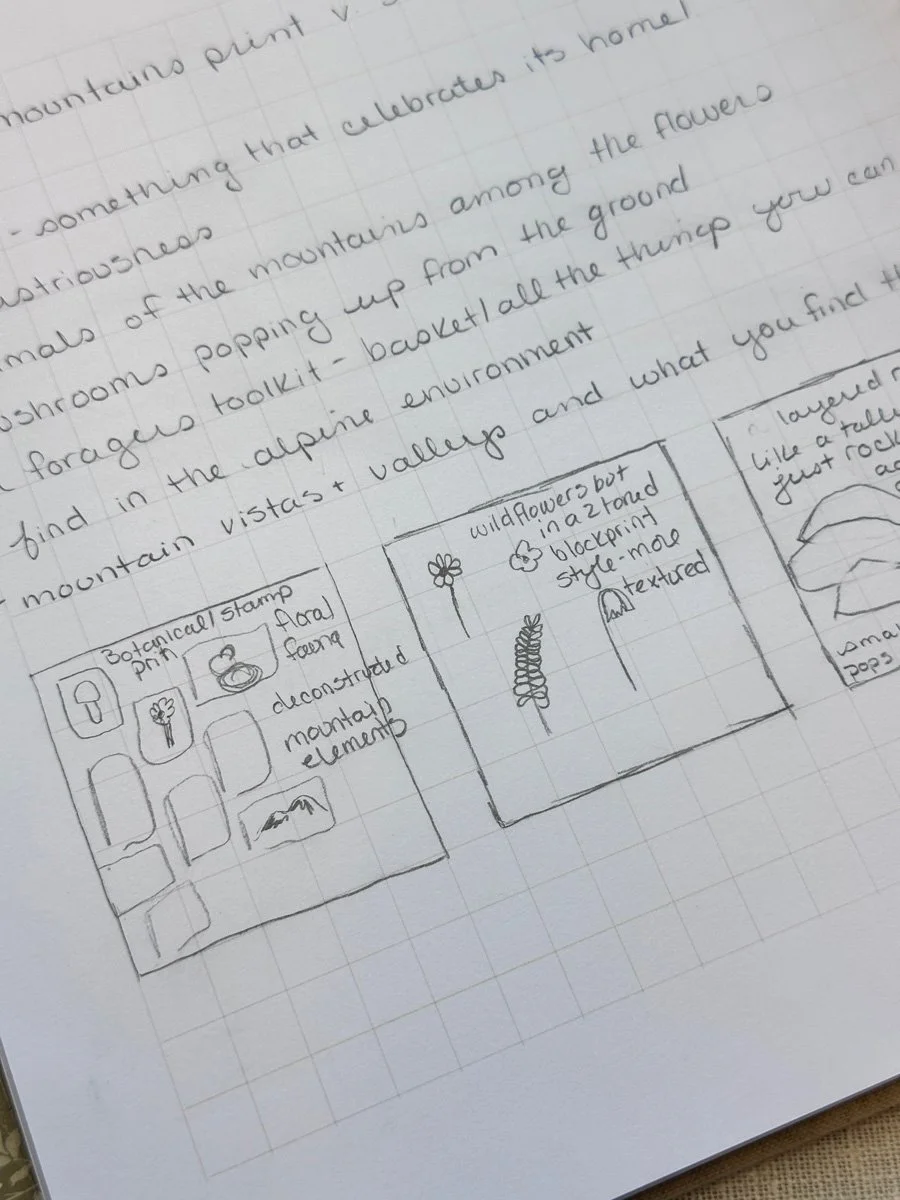 mountains print v.
- something that celebrates its home!
astriousness
imals of the mountains among the flowers
oshrooms popping up from the ground
foragers toolkit - basket/all the things you can
find in the alpine environment
- mountain vistas + valleys and what you find th
Botanical/stamp
print
floral
fauna
deconstructed
mountain
elements
wildflowers but
in a 2 toned
blockprint
style-more
textured
layered
like a
just rock
small
pops